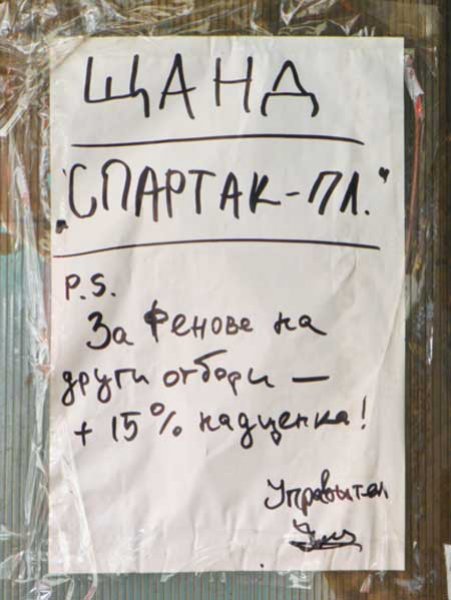 ЩАНД
„СПАРТАК-ПЛ.”
P.S.
За фенове на
други отбори —
+ 15% надценка!
Управител